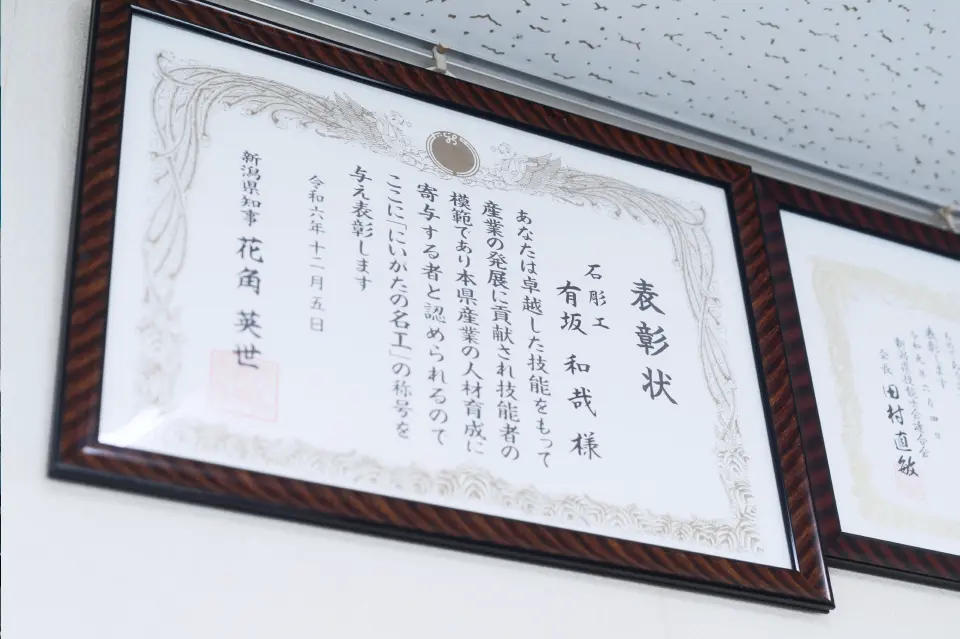 表彰状
石彫工
有坂 和哉 様
あなたは卓越した技能をもって
産業の発展に貢献され技能者の
模範であり本県産業の人材育成に
寄与する者と認められるので
ここに「にいがたの名工」の称号を
与え表彰します
令和六年十二月五日
新潟県知事 花角 英世
表彰します
令和元年六月四日
新潟県技能士会連合会
会長 田村直敏